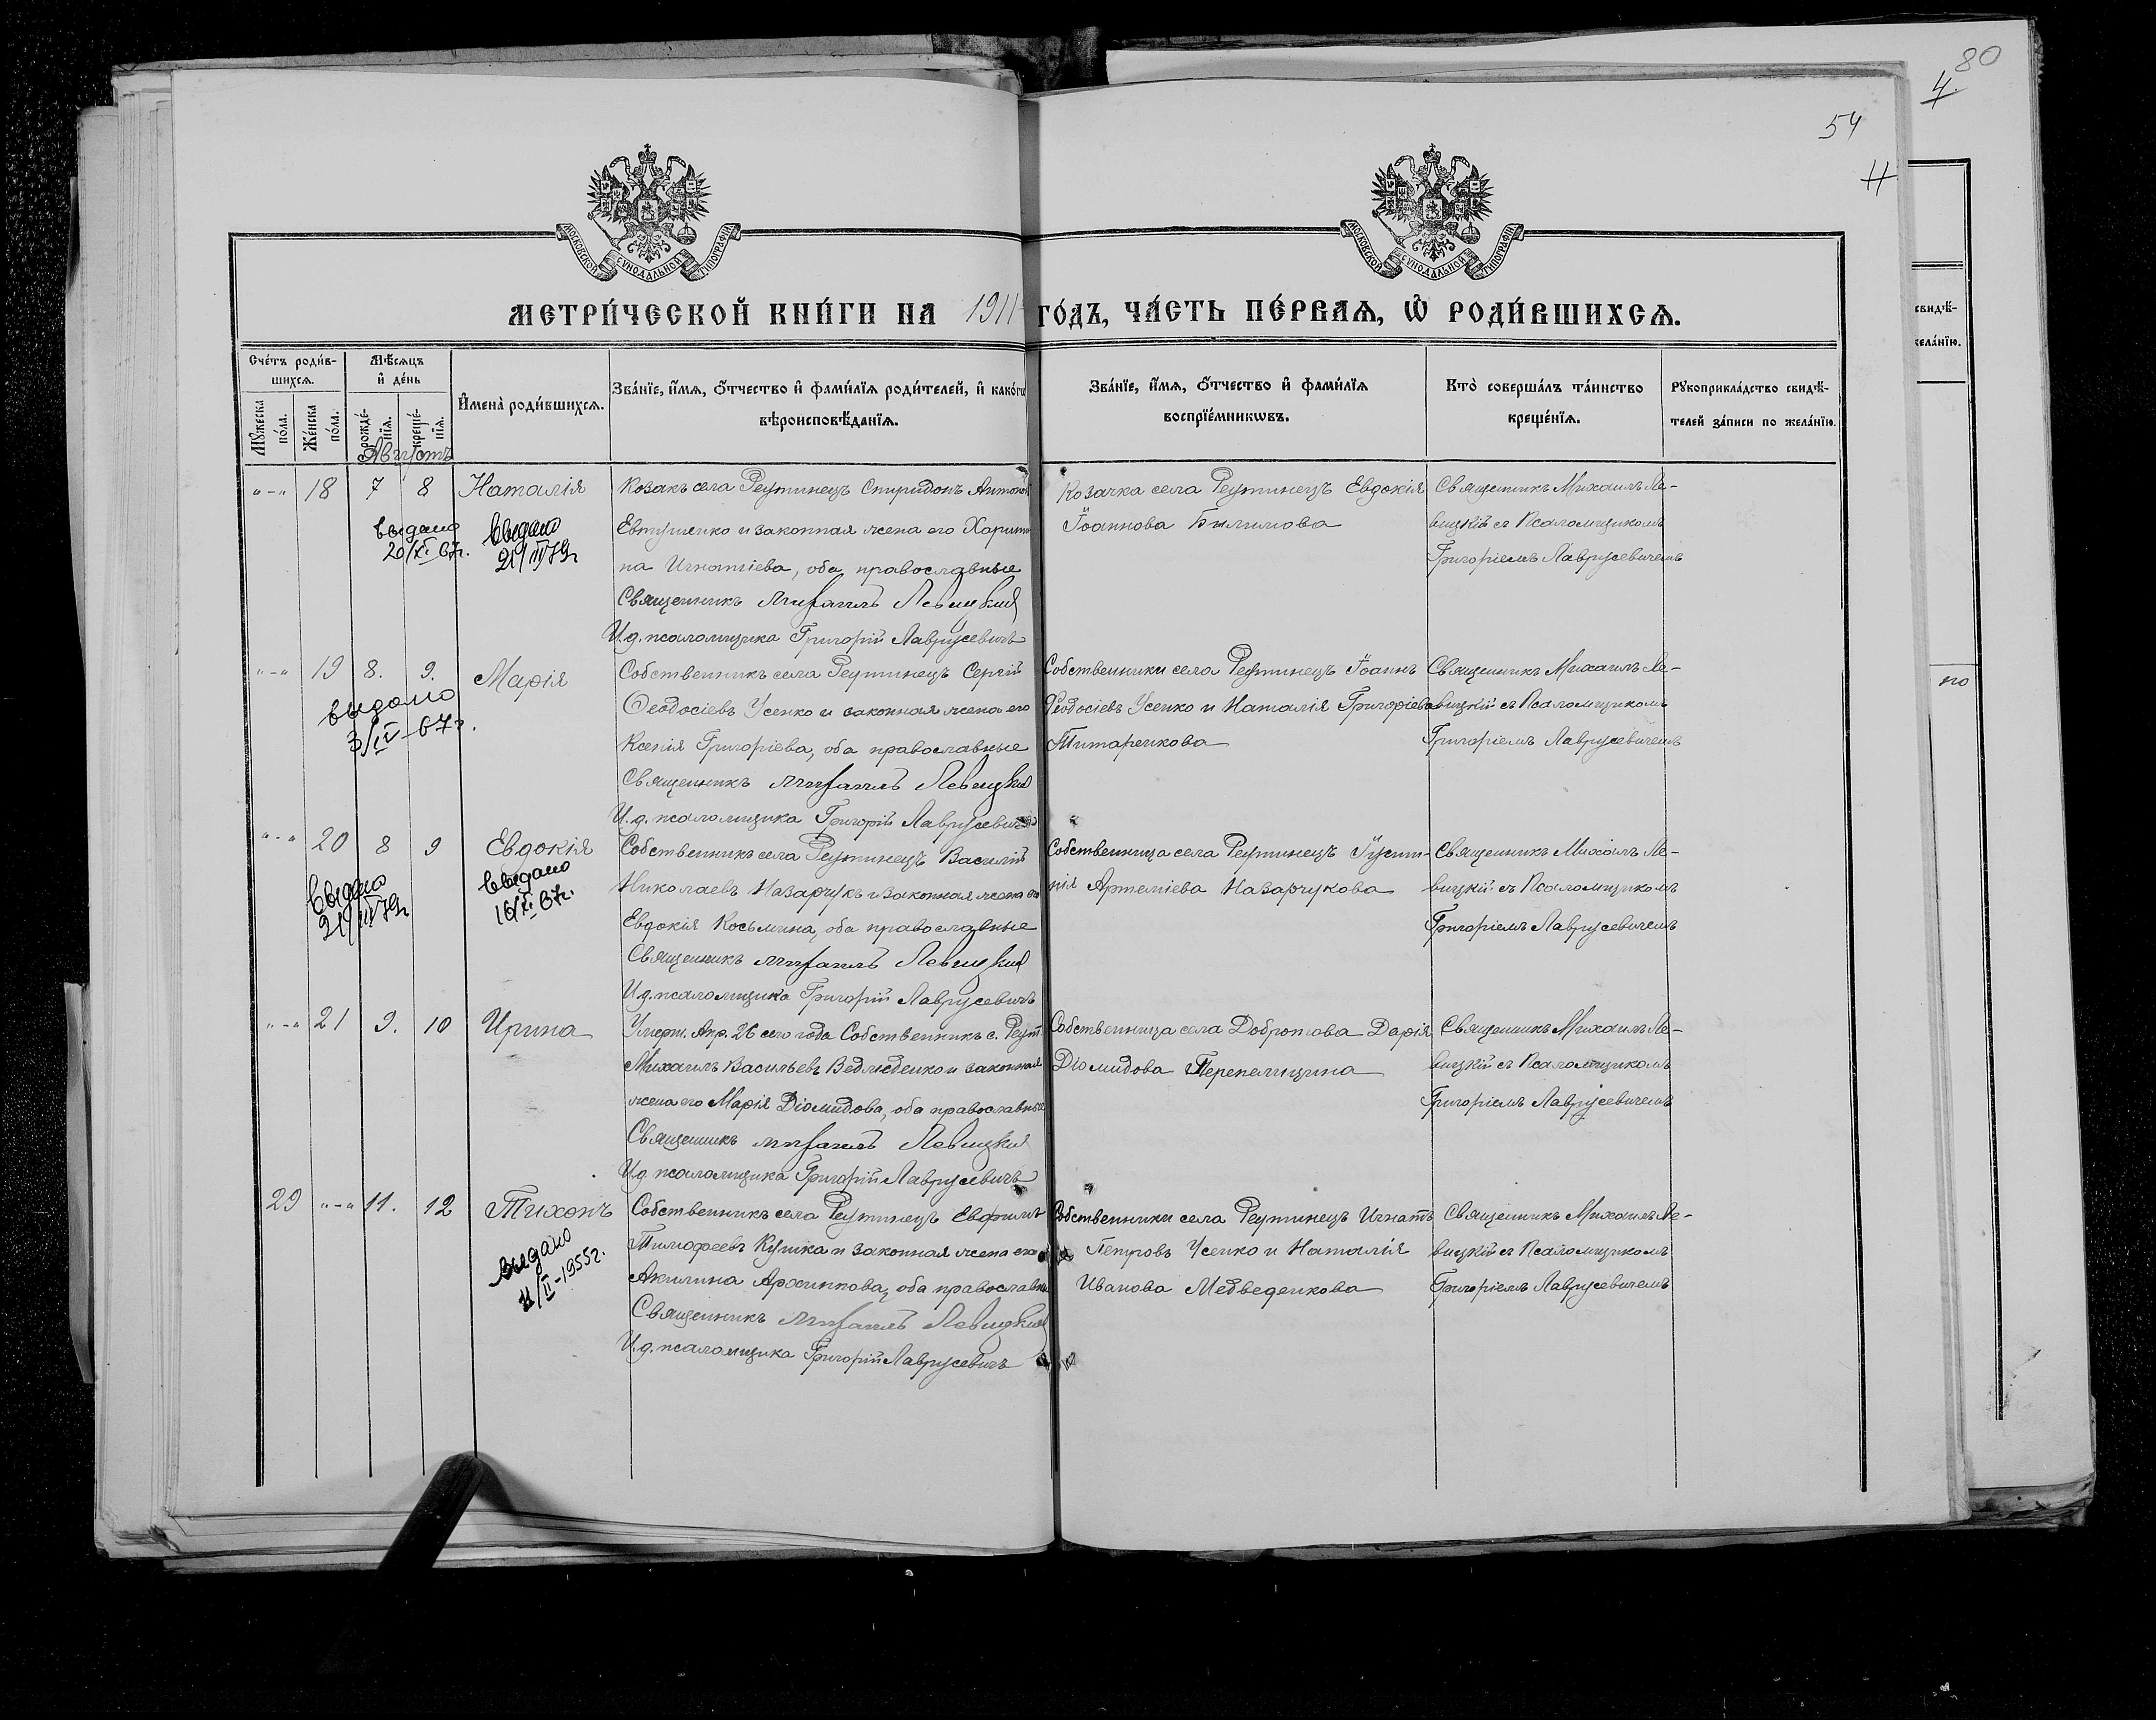 80
4.
54
11
МОСКОВСКОЙ СѴНОДАЛЬНОЙ ТИПОГРАФІИ
МОСКОВСКОЙ СѴНОДАЛЬНОЙ ТИПОГРАФІИ
МЕТРИ́ЧЕСКОЙ КНИ́ГИ НА 1911 ГО́ДЪ, ЧА́СТЬ ПЕ́РВАѦ, Ѽ РОДИ́ВШИХСѦ.
Сче́тъ роди́в-
шихсѧ.
Мꙋжеска по́ла.
Же́нска по́ла.
Мѣ́сѧцъ
и҆ де́нь
рожде́-
нїѧ.
креще́-
нїѧ.
Августъ
И҆мена̀ роди́вшихсѧ.
Зва́нїе, и҆́мѧ, ѻ҆́тчество и҆ фами́лїѧ роди́телей, и҆ како́гѡ
вѣроисповѣ́данїѧ.
Зва́нїе, и҆́мѧ, ѻ҆́тчество и҆ фами́лїѧ
воспрїе́мникѡвъ.
Кто̀ соверша́лъ та́инство
креще́нїѧ.
Рꙋкоприкла́дство свидѣ́-
телей за́писи по жела́нїю.
свидѣ́-
жела́нїю.
по
"-" 18 7 8 Наталія
Козакъ села Реутинецъ Спиридонъ Антонов
Евтушенко и законная жена его Харити
на Игнатіева, оба православные
Священникъ Михаилъ Левицкий
И.д. псаломщика Григорій Лаврусевичъ
Козачка села Реутинецъ Евдокія
Іоаннова Билимова
Священникъ Михаилъ Ле-
вицкій съ Псаломщикомъ
Григоріемъ Лаврусевичемъ
выдано
20/XI 67г.
выдано
21/III 79г
"-" 19 8. 9. Марія
Собственникъ села Реутинецъ Сергій
Ѳеодосіевъ Усенко и законная жена его
Ксенія Григоріева, оба православные
Священникъ Михаилъ Левицкий
И.д. псаломщика Григорій Лаврусевичъ
Собственники села Реутинецъ Іоаннъ
Ѳеодосіевъ Усенко и Наталія Григоріева
Титаренкова
Священникъ Михаилъ Ле-
вицкій съ Псаломщикомъ
Григоріемъ Лаврусевичемъ
выдано
"-" 20 8 9 Евдокія
Собственникъ села Реутинецъ Василій
Николаевъ Назарчукъ и законная жена его
Евдокія Косьмина, оба православные
Священникъ Михаилъ Левицкий
И.д. псаломщика Григорій Лаврусевичъ
Собственница села Реутинецъ Іусти-
нія Артеміева Назарчукова
Священникъ Михаилъ Ле-
вицкій съ Псаломщикомъ
Григоріемъ Лаврусевичемъ
Выдано
21/III 79г
выдано
16/XI 67г.
"-" 21 9. 10 Ирина
Умерш. Апр. 26 сего года Собственникъ с. Реут.
Михаилъ Васильевъ Ведмеденко и законная
жена его Марія Діомидова, оба православные
Священникъ Михаилъ Левицкий
И.д. псаломщика Григорій Лаврусевичъ
Собственница села Добротова Дарія
Діомидова Перепелицина
Священникъ Михаилъ Ле-
вицкій съ Псаломщикомъ
Григоріемъ Лаврусевичемъ
29 "-" 11. 12 Тихонъ
Собственникъ села Реутинецъ Евфимъ
Тимофеевъ Кушка и законная жена его
Акилина Архиппова, оба православны
Священникъ Михаилъ Левицкий
И.д. псаломщика Григорій Лаврусевичъ
Собственники села Реутинецъ Игнатъ
Петровъ Усенко и Наталія
Иванова Медведенкова
Священникъ Михаилъ Ле-
вицкій съ Псаломщикомъ
Григоріемъ Лаврусевичемъ
выдано
11/II-1955г.